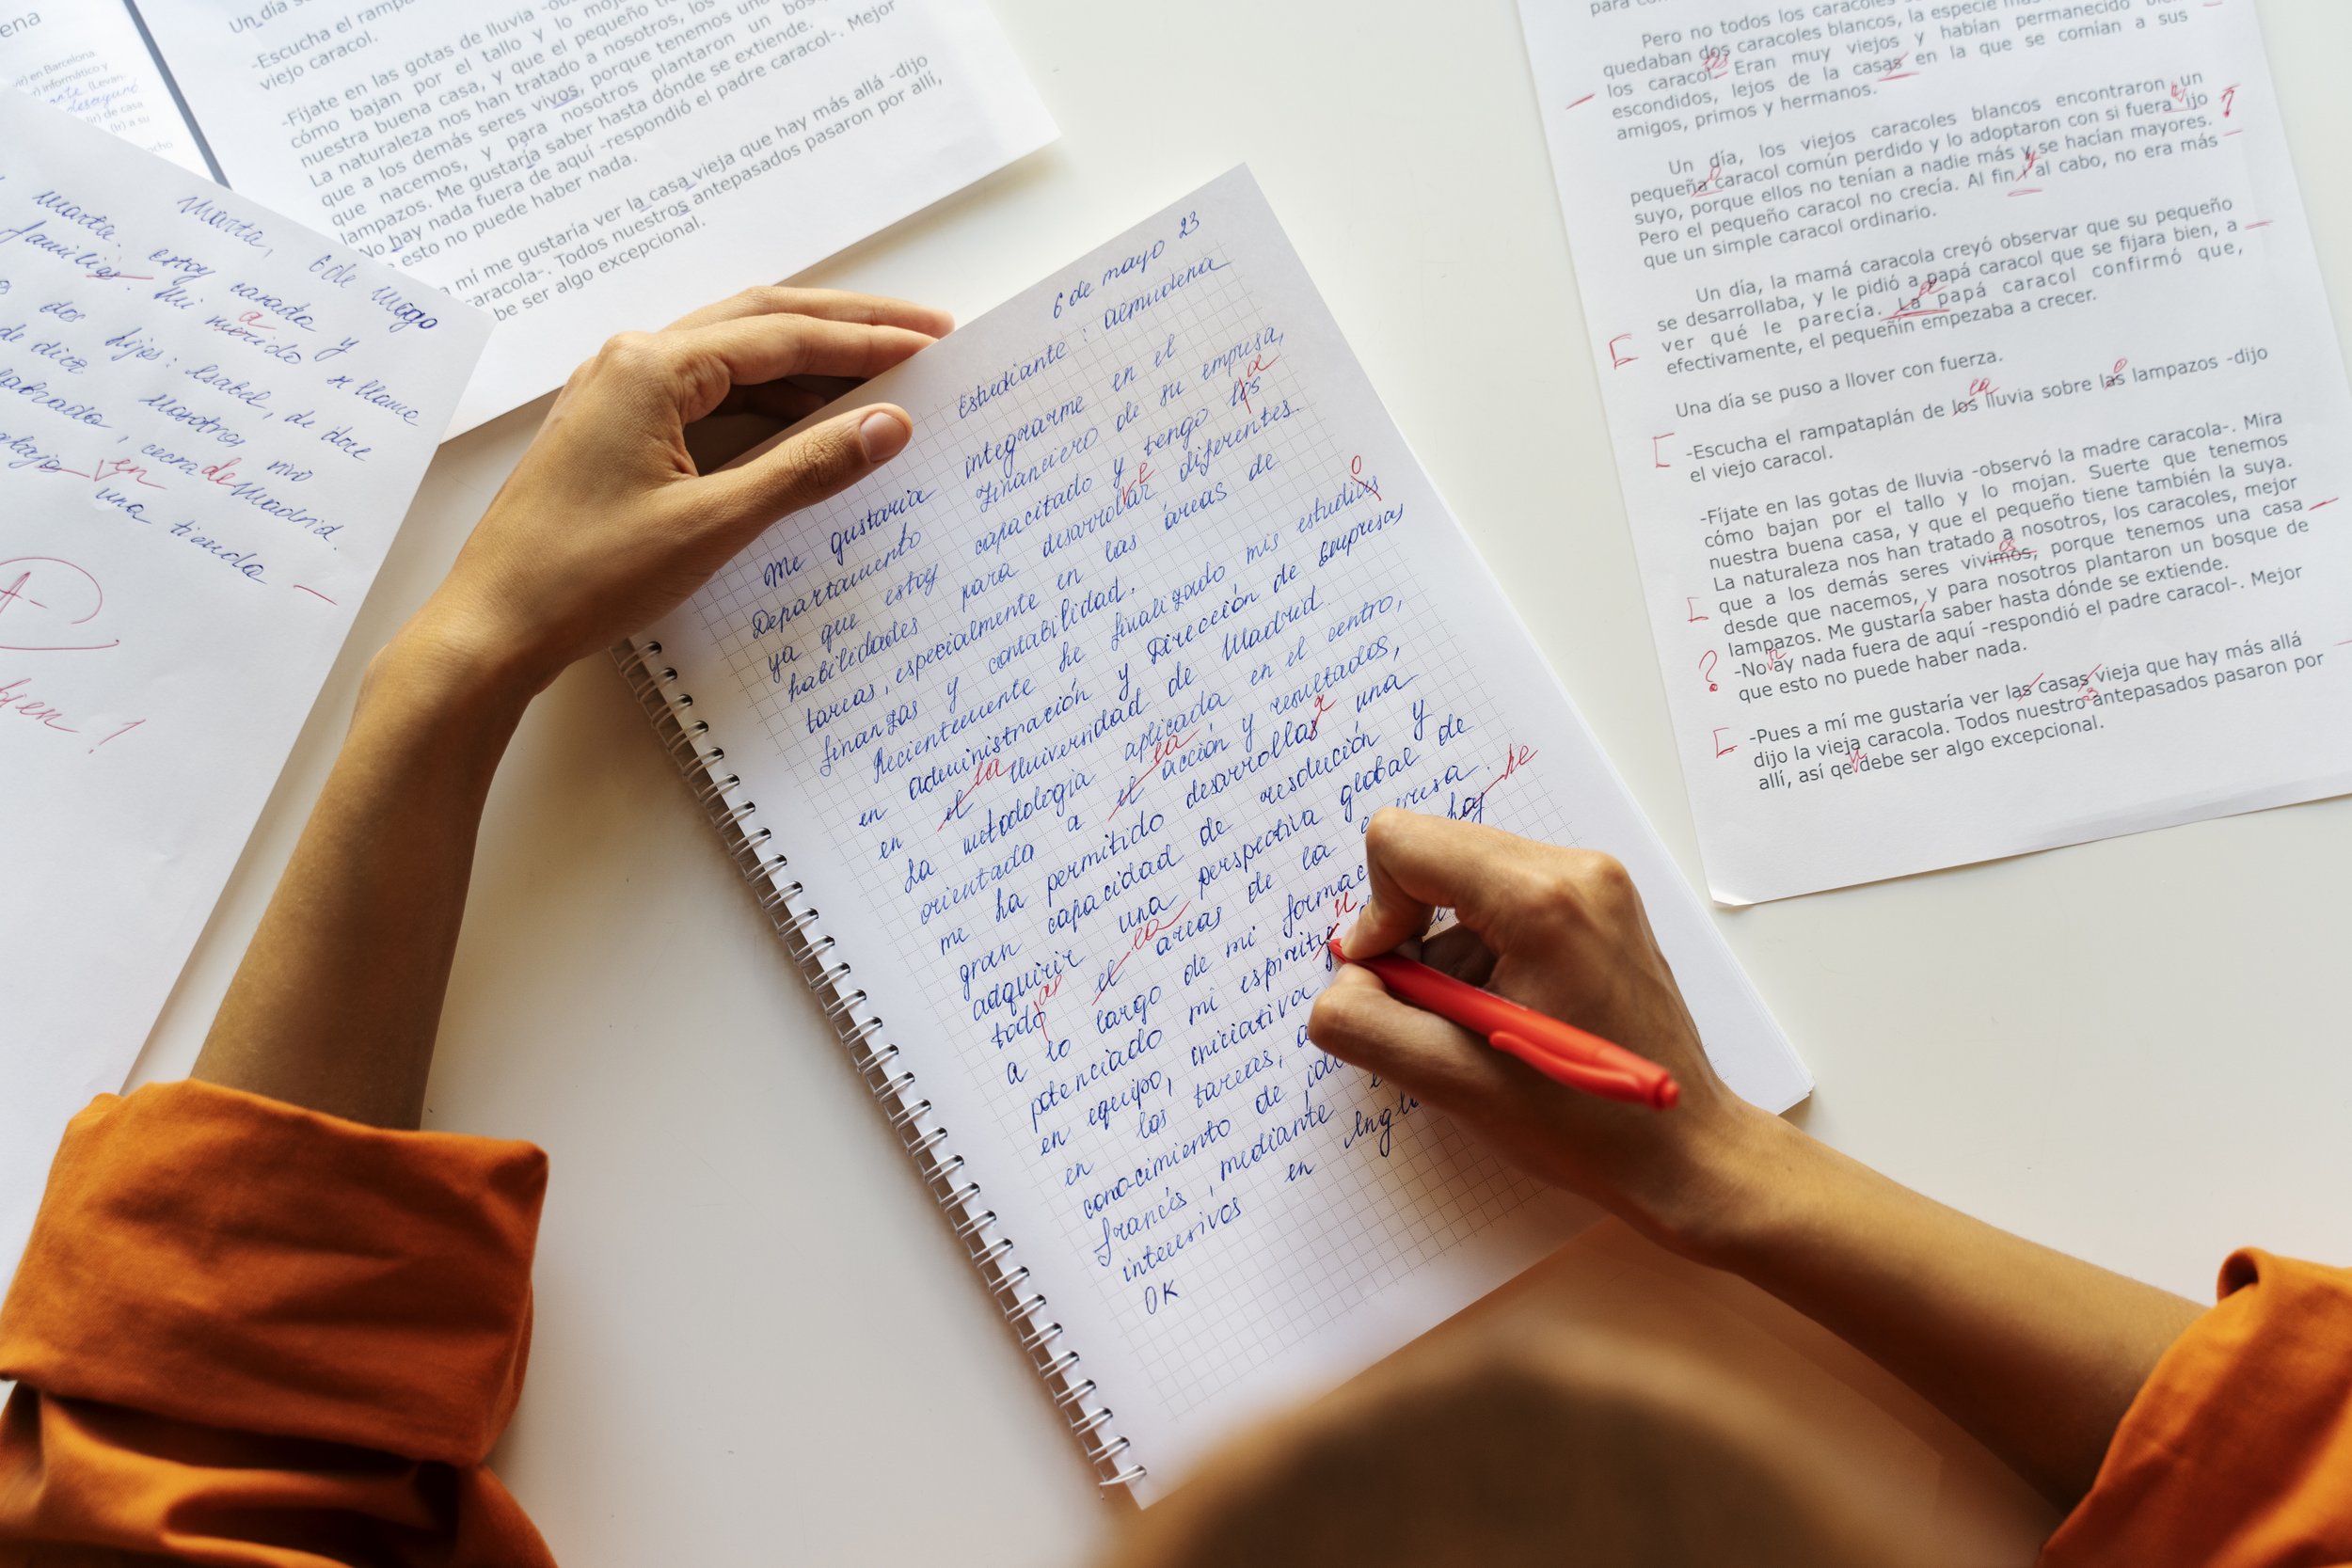 ena
vir) en Barcelona
(Levan-
desayuné
(Ir) de casa
(Ir) a su
Un día s
-Escucha el rampa
viejo caracol.
-Fíjate en las gotas de lluvia -ob
cómo bajan por el tallo y lo moja
nuestra buena casa, y que el pequeño ti
La naturaleza nos han tratado a nosotros, los
que a los demás seres vivos, porque tenemos una
que nacemos, y para nosotros plantaron un bosq
lampazos. Me gustaría saber hasta dónde se extiende.
-No hay nada fuera de aquí -respondió el padre caracol-. Mejor
esto no puede haber nada.
a mí me gustaría ver la casa vieja que hay más allá -dijo
caracola-. Todos nuestros antepasados pasaron por allí,
be ser algo excepcional.
Marta, 6 de Mayo
Marta. estoy casada y
familias. Mi merido a se llama
dos hijos: Isabel, de doce
de diez Nosotros vivo
, cerca de Madrid.
en una tienda
A-
bien!
6 de mayo 23
Estudiante: Almudena
Me gustaria integrarme en el
Departamento Financiero de su empresa,
ya que estoy capacitado y tengo los a
habilidades para desarrollar diferentes
tareas, especialmente en las áreas de
finanzas y contabilidad.
Recientemente he finalizado mis estudias o
en administración y Dirección de Empresas
en el la Universidad de Madrid.
La metodología aplicada en el centro,
orientada a el la acción y resultados,
me ha permitido desarrollas r una
gran capacidad de resolución y
adquirir una perspectiva global de
todo as el la areas de la empresa.
a lo largo de mi formac hay he
potenciado mi espiritu
en equipo, iniciativa
en las tareas, a
conocimiento de idi
francés, mediante
intensivos en Ingl
OK
Pero no todos los caracoles
quedaban dos caracoles blancos, la especie más
los caracol. Eran muy viejos y habían permanecido
escondidos, lejos de la casas en la que se comían a sus
amigos, primos y hermanos.
Un día, los viejos caracoles blancos encontraron un
pequeña o caracol común perdido y lo adoptaron con si fuera ijo ?
suyo, porque ellos no tenían a nadie más y se hacían mayores.
Pero el pequeño caracol no crecía. Al fin y al cabo, no era más
que un simple caracol ordinario.
Un día, la mamá caracola creyó observar que su pequeño
se desarrollaba, y le pidió a papá caracol que se fijara bien, a
ver qué le parecía. La papá caracol confirmó que,
efectivamente, el pequeñín empezaba a crecer.
Una día se puso a llover con fuerza.
-Escucha el rampataplán de los la lluvia sobre las o lampazos -dijo
el viejo caracol.
-Fíjate en las gotas de lluvia -observó la madre caracola-. Mira
cómo bajan por el tallo y lo mojan. Suerte que tenemos
nuestra buena casa, y que el pequeño tiene también la suya.
La naturaleza nos han tratado a nosotros, los caracoles, mejor
que a los demás seres vivimos, porque tenemos una casa
desde que nacemos, y para nosotros plantaron un bosque de
lampazos. Me gustaría saber hasta dónde se extiende.
? -No ay nada fuera de aquí -respondió el padre caracol-. Mejor
que esto no puede haber nada.
-Pues a mí me gustaría ver las casas vieja que hay más allá
dijo la vieja caracola. Todos nuestro s antepasados pasaron por
allí, así qe debe ser algo excepcional.